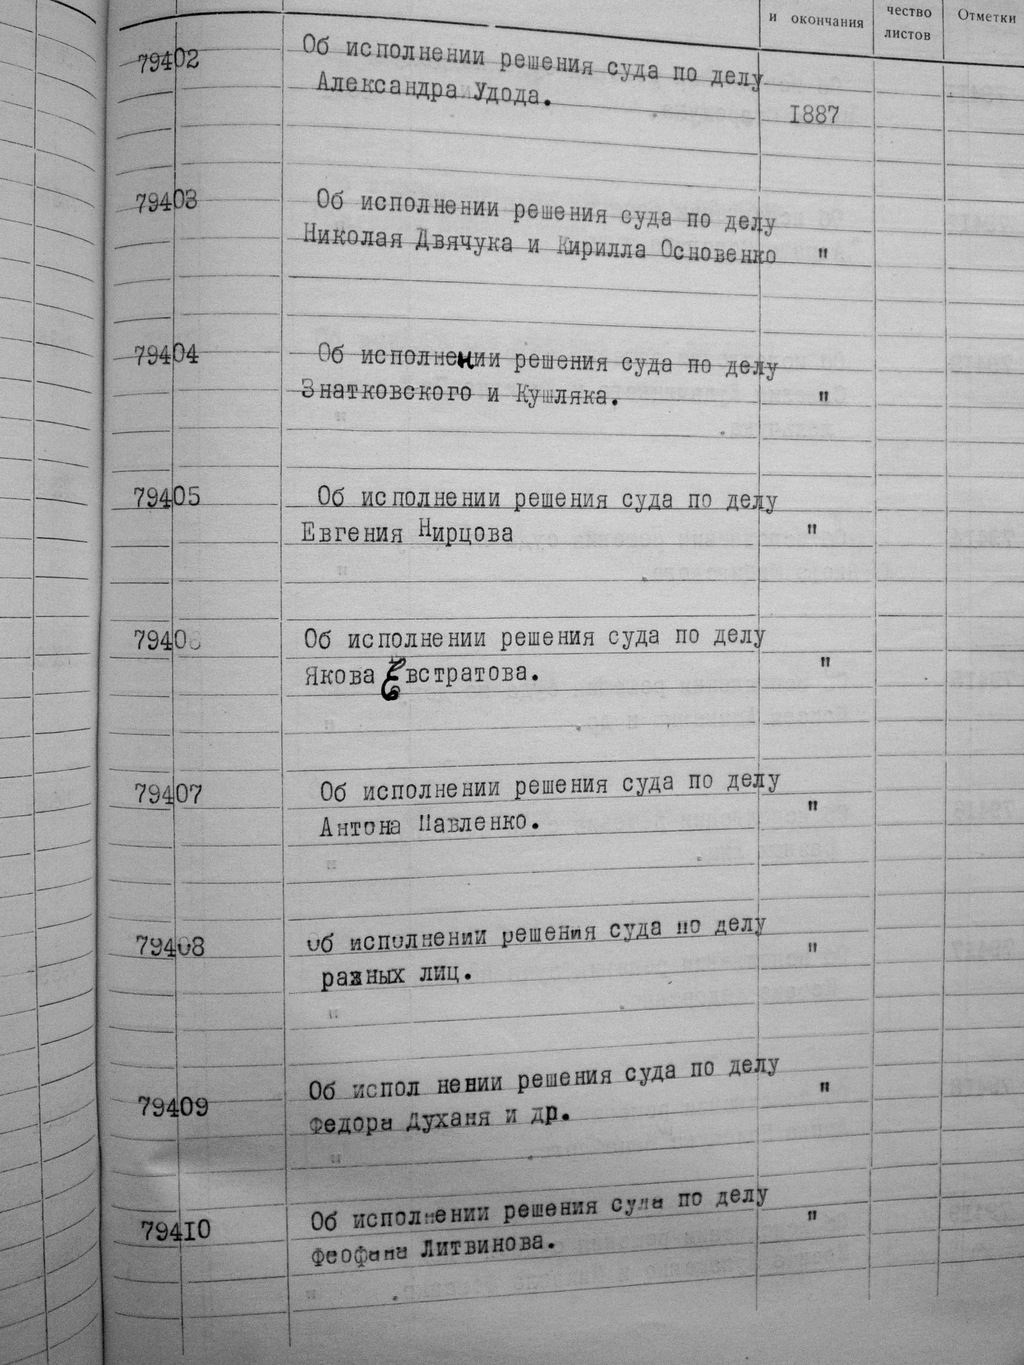 и окончания
чество
листов
Отметки
79402
Об исполнении решения суда по делу
Александра Удода.
1887
79403
Об исполнении решения суда по делу
Николая Двячука и Кирилла Основенко "
79404
Об исполнении решения суда по делу
Знатковского и Кушляка. "
79405
Об исполнении решения суда по делу
Евгения Нирцова "
79406
Об исполнении решения суда по делу
Якова Евстратова. "
79407
Об исполнении решения суда по делу
Антона Павленко. "
79408
Об исполнении решения суда по делу "
разных лиц.
79409
Об испол нении решения суда по делу "
Федора Духаня и др.
79410
Об исполнении решения суда по делу "
Феофана Литвинова.